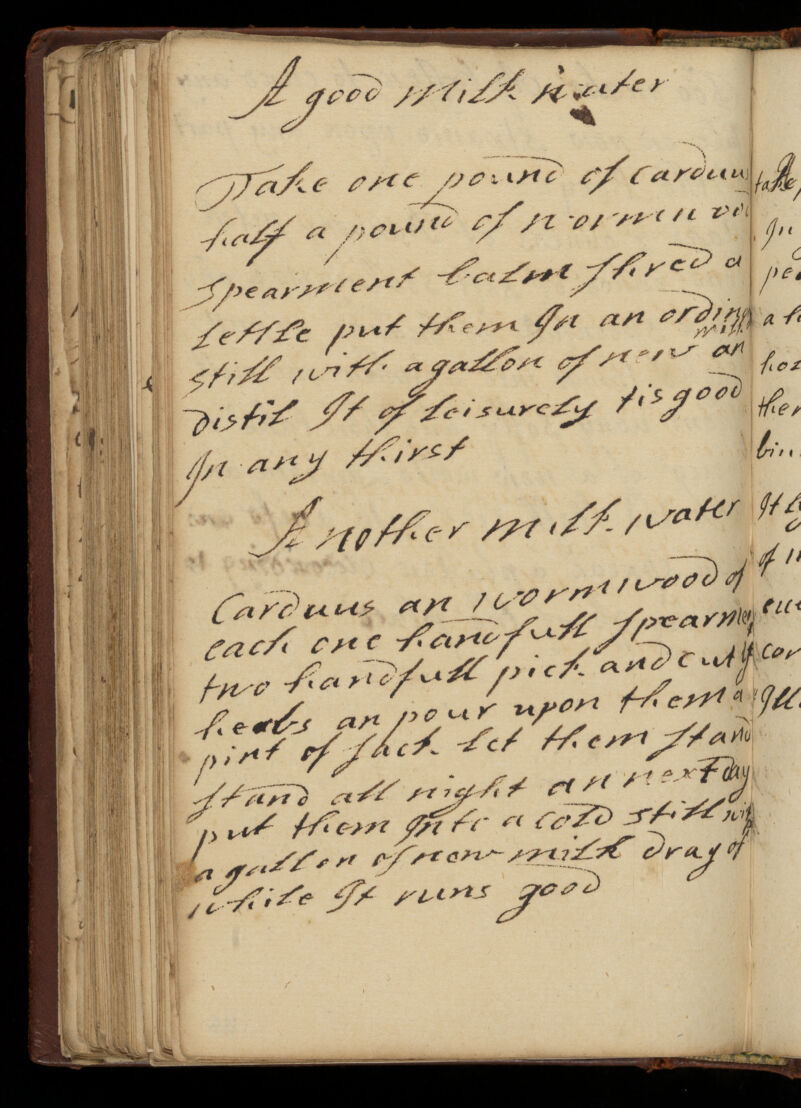 A good milk water
Take one pound of carduu
half a pound of wormwood
spearment balm shred a
lettle put them In an ordin
still with a gallon of new milk an
distil It of leisurely tis good
In any thirst
Another milk water
Carduus an wormwood of
each one handfull spearme
two handfull pick and cut
herbs an pour upon them a
pint of sack let them stand
stand all night an next day
put them Into a cold still wit
a gallon of new milk dray of
while It runs good
take
In
pee
a h
hot
ther
bin
It
of
eue
cor
Ill